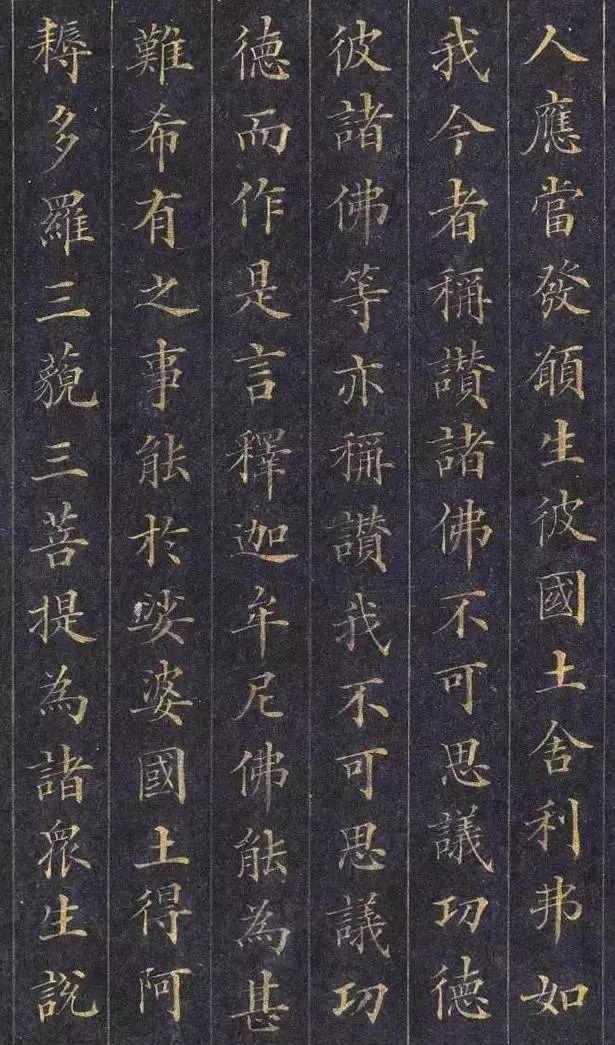 人應當發願生彼國土舍利弗如
我今者稱讚諸佛不可思議功德
彼諸佛等亦稱讚我不可思議功
德而作是言釋迦牟尼佛能為甚
難希有之事能於娑婆國土得阿
耨多羅三藐三菩提為諸眾生說